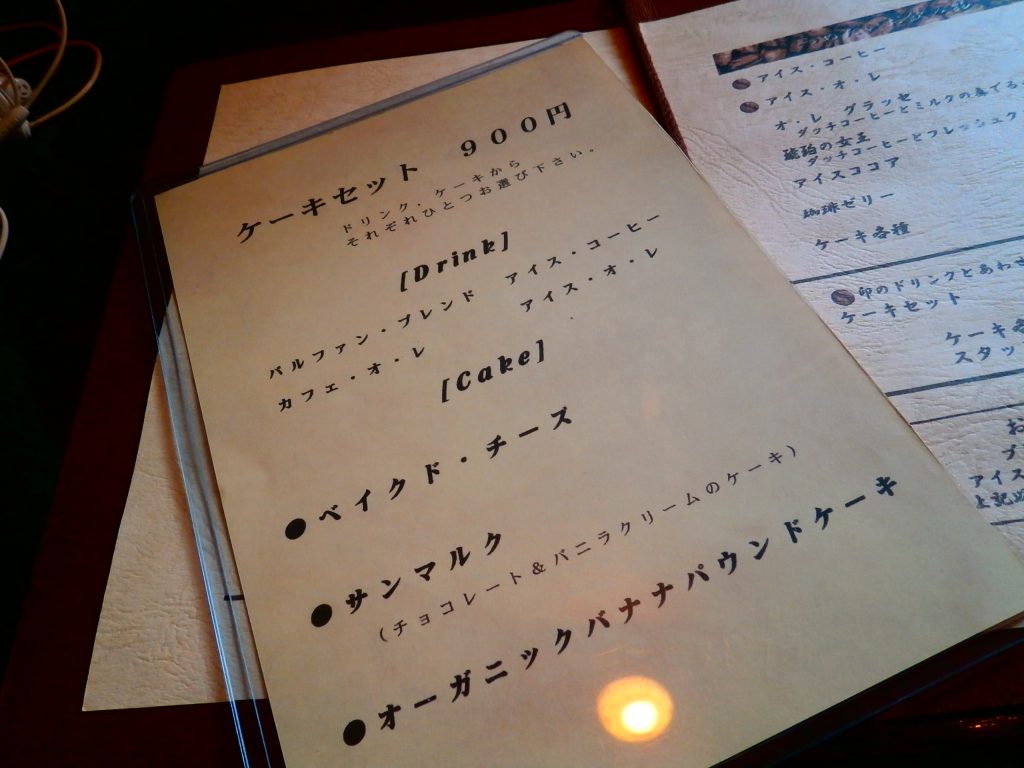 ケーキセット　９００円
ドリンク、ケーキから
それぞれひとつお選び下さい。
[Drink]
パルファン・ブレンド　アイス・コーヒー
カフェ・オ・レ　アイス・オ・レ
[Cake]
●ベイクド・チーズ
●サンマルク
(チョコレート＆バニラクリームのケーキ)
●オーガニックバナナパウンドケーキ
アイス・コーヒー
アイス・オ・レ
オ・レ グラッセ
ダッチコーヒーとミルクの奏でる
琥珀の女王
ダッチコーヒーとフレッシュク
アイスココア
珈琲ゼリー
ケーキ各種
印のドリンクとあわせ
ケーキセット
ケーキ
スタッ
お
アイス
上記以